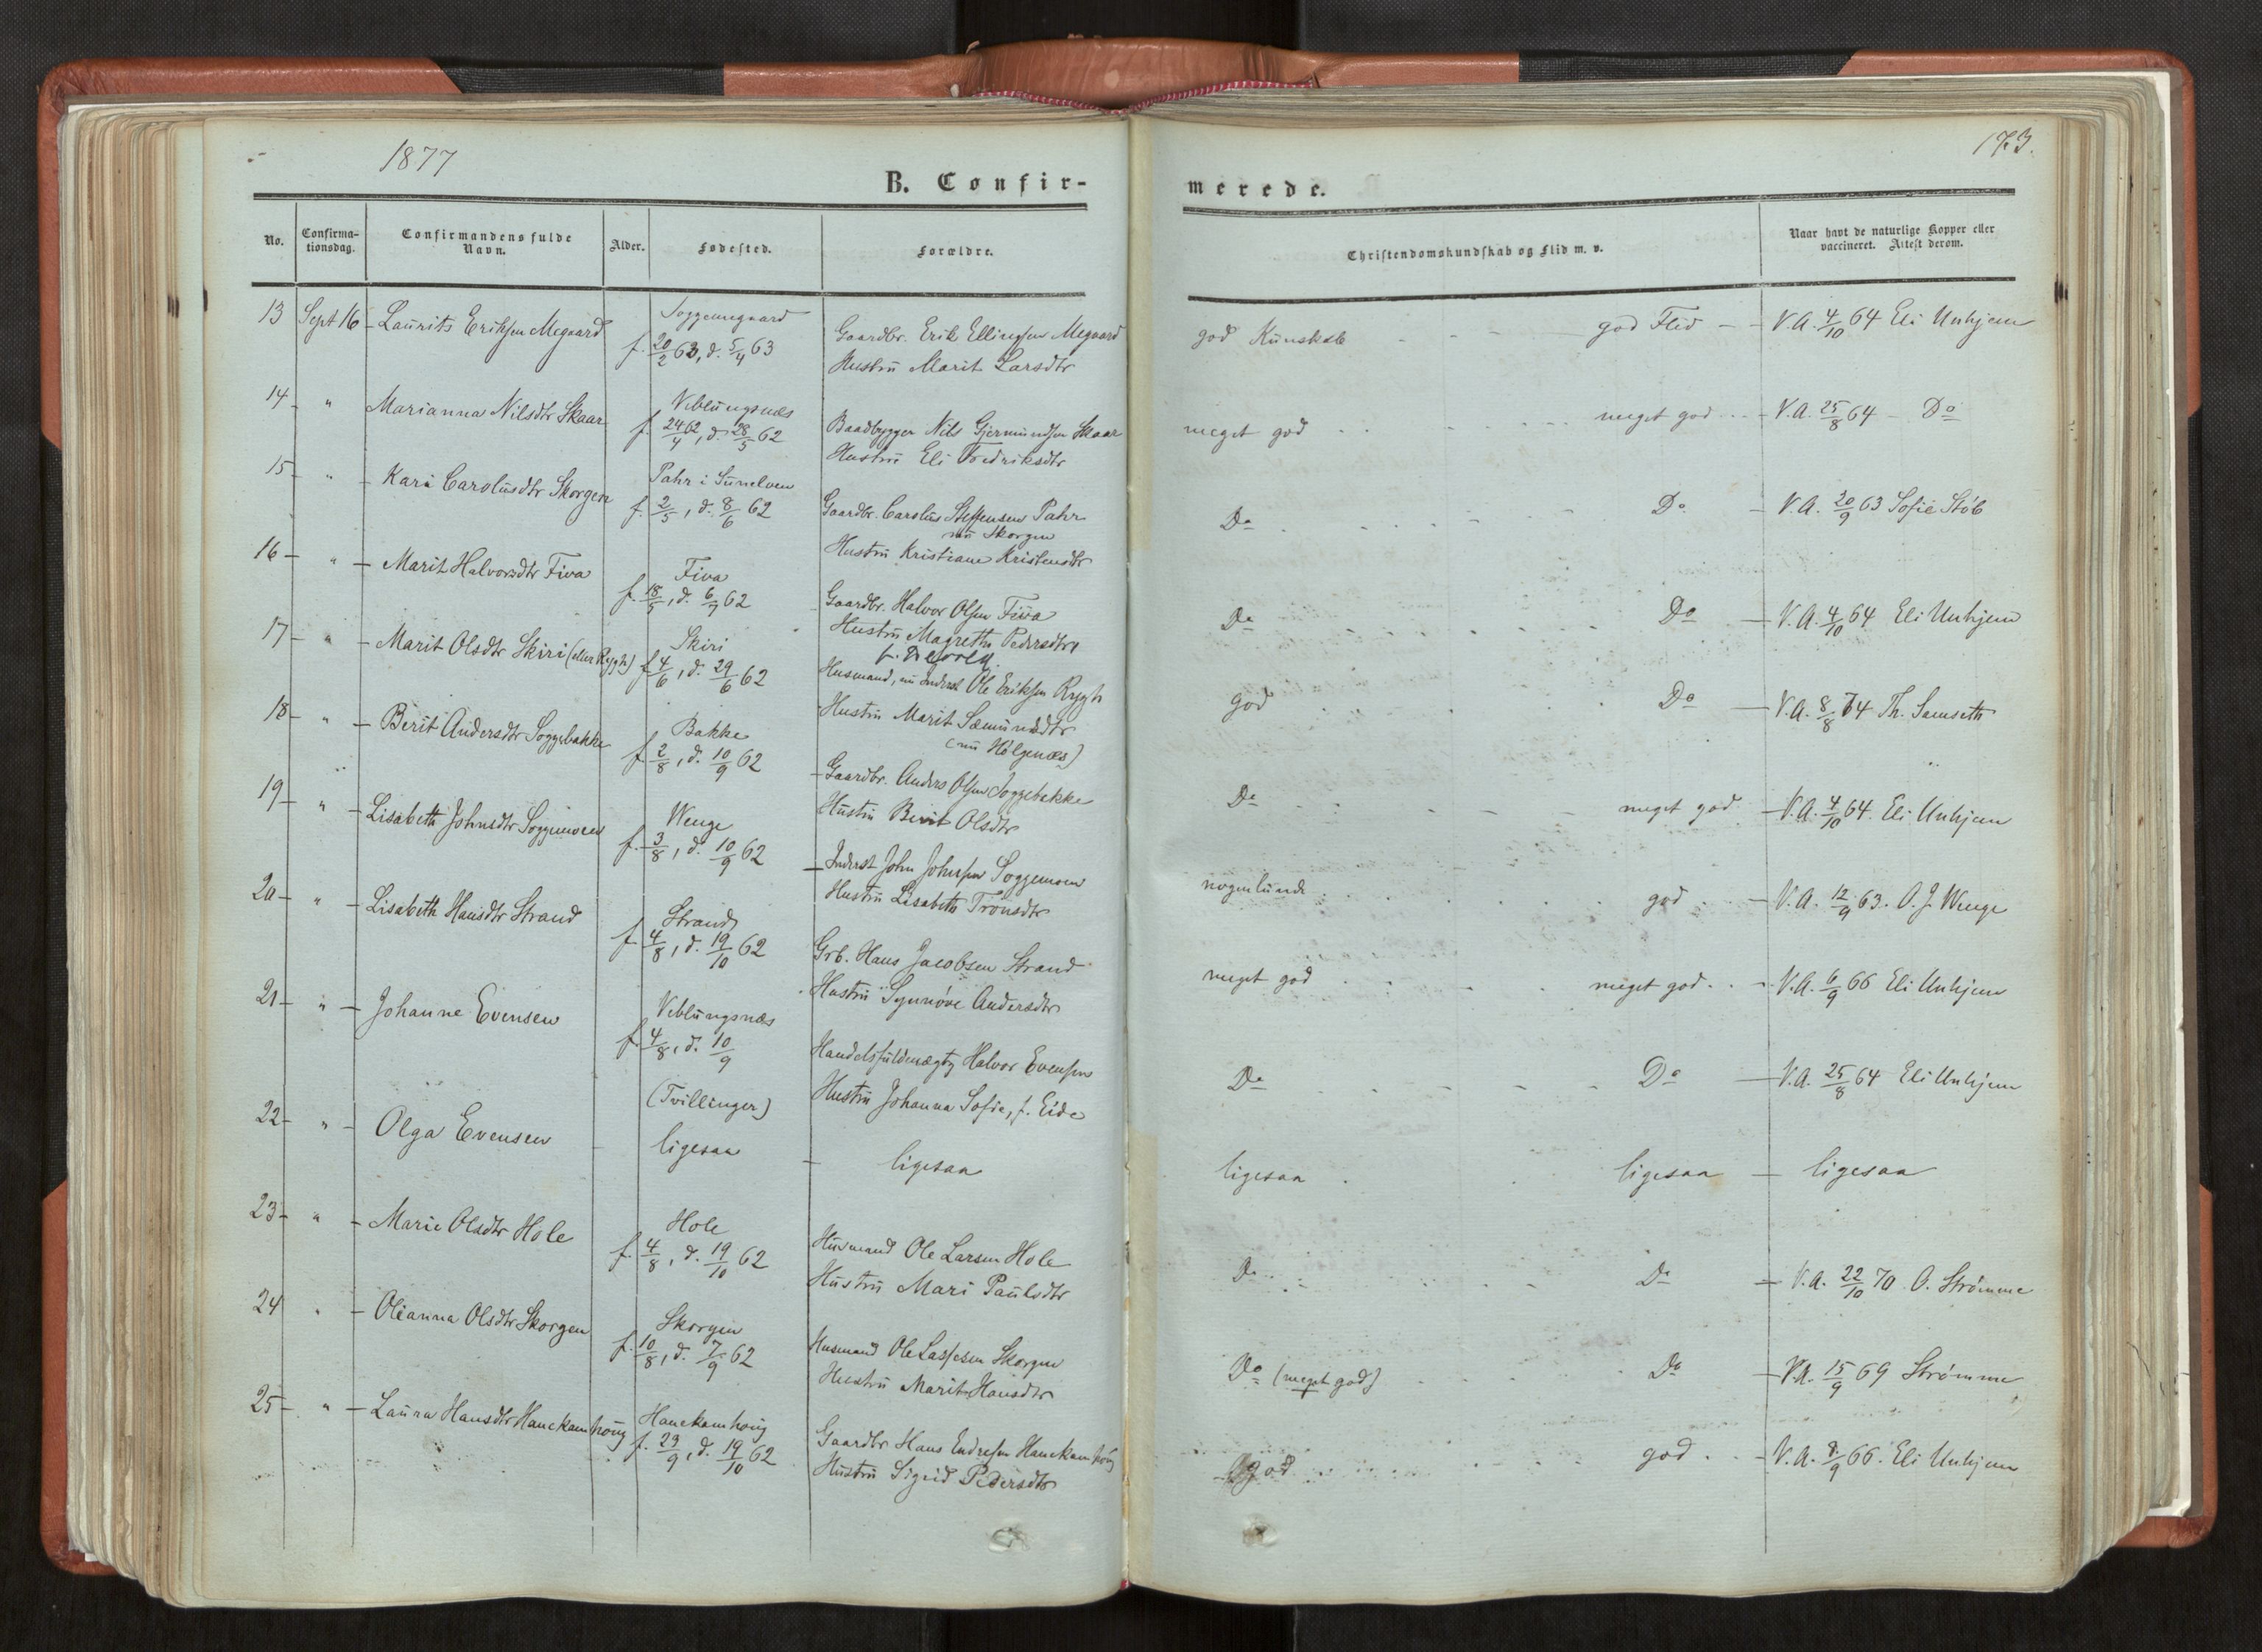 1877
173.
B. Confir-
merede.
No.
Confirma-
tionsdag.
Confirmandens fulde
Navn.
Alder.
Fødested.
Forældre.
Christendomskundskab og Flid m. v.
Naar havt de naturlige Kopper eller
vaccineret. Attest derom.
13 Sept 16 - Laurits Eriksen Megaard
Soggemegaard
f. 20/2 63, d. 5/4 63
Gaardbr. Erik Ellingsen Megaard
Hustru Marit Larsdtr
god Kunskab - - - god Flid - - V.A. 4/10 64 Eli Unhjem
14 - " Marianna Nilsdtr Skaar
Veblungsnæs
f. 24/4 62, d. 28/5 62
Baadbygger Nils Gjermundsen Skaar
Hustru Eli Fredriksdtr
meget god meget god - V.A. 25/8 64 - Do
15 - " - Kari Carolusdtr Skorgen
Pahr i Sunelven
f. 2/5, d. 8/6 62
Gaardbr. Carolus Steffensen Pahr
nu Skorgen
Hustru Kristiane Kristensdtr
Do Do - V.A. 30/9 63 Sofie Støb
16 - " - Marit Halvorsdtr Fiva
Fiva
f. 18/5, d. 6/7 62
Gaardbr. Halvor Olsen Fiva
Hustru Magrethe Pedersdtr
Do Do - V.A. 4/10 64 Eli Unhjem
17 - " - Marit Olsdtr Skiri (eller Rygh)
Skiri
f. 4/6, d. 29/6 62
Husmand, nu Inderst Ole Eriksen Rygh
Hustru Marit Sæmundsdtr
(nu Hølgenæs)
god Do - V.A. 8/8 74 Th. Samseth
18 - " - Berit Andersdtr Soggebakke
Bakke
f. 2/8, d. 10/9 62
- Gaardbr. Anders Olsen Soggebakke
Hustru Berit Olsdtr
Do meget god - V.A. 4/10 64. Eli Unhjem
19 - " - Lisabeth Johnsdtr Soggemoen
Wenge
f. 3/8, d. 10/9 62
- Inderst John Johnsen Soggemoen
Hustru Lisabeth Tronsdtr
nogenlunde god - V.A. 12/9 63. O. J. Wenge
20 - " - Lisabeth Hansdtr Strand
Strand
f. 4/8, d. 19/10 62
Grb. Hans Jacobsen Strand
Hustru Synnøve Andersdtr
meget god meget god - V.A. 6/9 66 Eli Unhjem
21 - " - Johanne Evensen
Veblungsnæs
f. 4/8, d. 10/9
(Tvillinger)
Handelsfuldmægtig Halvor Evensen
Hustru Johanna Sofie, f. Eide
Do Do - V.A. 25/8 64 Eli Unhjem
22 - " - Olga Evensen - ligesaa - ligesaa
ligesaa ligesaa - ligesaa
23 - " - Marie Olsdtr Hole
Hole
f. 4/8, d. 19/10 62
Husmand Ole Larsen Hole
Hustru Mari Paulsdtr
Do Do - V.A. 22/10 70. O. Strømme
24 " - Olianna Olsdtr Skorgen
Skorgen
f. 10/8, d. 7/9 62
Husmand Ole Lassesen Skorgen
Hustru Marit Hansdtr
Do (meget god) Do - V.A. 15/9 69 Strømme
25 - " - Laura Hansdtr Hanekamhoug
Hanekamhoug
f. 29/9, d. 19/10 62
Gaardbr Hans Endresen Hanekamhoug
Hustru Sigrid Pedersdtr
god god - V.A. 8/9 66. Eli Unhjem